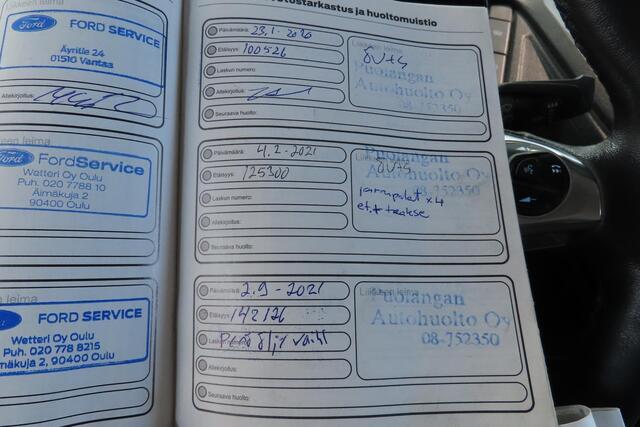 Liikkeen leima
Ford FORD SERVICE
Äyritie 24
01510 Vantaa
Allekirjoitus:
Liikkeen leima
Ford FordService
Wetteri Oy Oulu
Puh. 020 7788 10
Äimäkuja 2
90400 Oulu
leima
FORD SERVICE
Wetteri Oy Oulu
Puh. 020 778 8215
Äimäkuja 2, 90400 Oulu
tarkastus ja huoltomuistio
Päivämäärä: 23.1.2020
Etäisyys: 100526
Laskun numero:
Allekirjoitus:
Seuraava huolto:
Liikkeen leima
Puolangan
Autohuolto Oy
08-752350
Päivämäärä: 4.2-2021
Etäisyys: 125300
Laskun numero:
Allekirjoitus:
Seuraava huolto:
Puolangan
Autohuolto Oy
08-752350
jarrupalat x4
Päivämäärä: 2.9-2021
Etäisyys: 142126
Allekirjoitus:
Seuraava huolto:
Liikkeen leima
Puolangan
Autohuolto Oy
08-752350